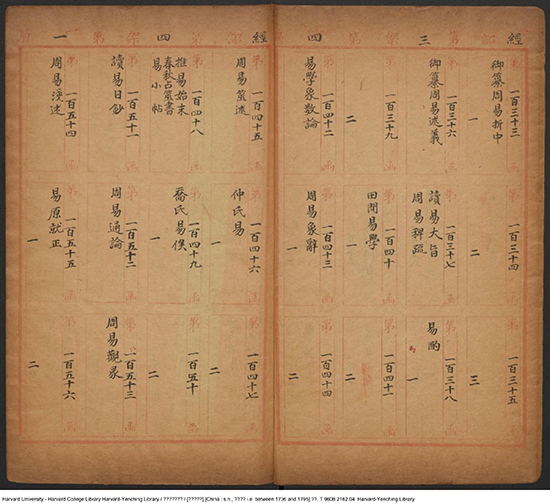 經部第三架第四
第一百三十三函
御纂周易折中
一
第一百三十四函
二
第一百三十五函
三
第一百三十六函
御纂周易述義
第一百三十七函
讀易大旨
周易稗疏
第一百三十八函
易酌
一
第一百三十九函
二
第一百四十函
田間易學
一
第一百四十一函
二
第一百四十二函
易學象數論
第一百四十三函
周易象辭
一
第一百四十四函
二
經部第四架第一
第一百四十五函
周易筮述
第一百四十六函
仲氏易
一
第一百四十七函
二
第一百四十八函
推易始末
春秋占筮書
易小帖
第一百四十九函
喬氏易俟
一
第一百五十函
二
第一百五十一函
讀易日鈔
第一百五十二函
周易通論
第一百五十三函
周易觀彖
第一百五十四函
周易淺述
第一百五十五函
易原就正
一
第一百五十六函
二
Harvard University - Harvard College Library Harvard-Yenching Library / ??????? / [?????] [China : s.n., ???? i.e. between 1736 and 1795] ??. T 9608 2162.04 Harvard-Yenching Library